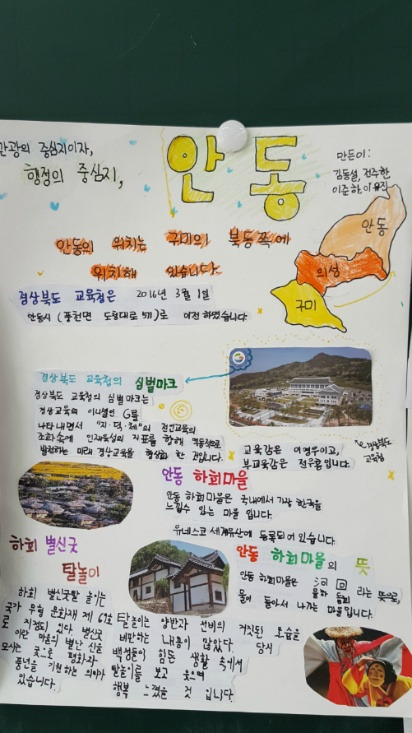 관광의 중심지이자,
행정의 중심지,
안동
만든이 :
김동설, 전주한
이준하, 이용진
안동의 위치는 구미의 북동쪽에
위치해 있습니다
안동
의성
구미
경상북도 교육청은 2016년 3월 1일
안동시 (풍천면 도청대로 511)로 이전 하였습니다
경상북도 교육청의 심벌마크
경상북도 교육청의 심벌마크는
경상교육의 이니셜인 G를
나타내면서 "지·덕·체"의 전인교육의
조화속에 인재육성의 지표를 향해 역동적으로
발전하는 미래 경상교육을 형상화 한 것입니다.
교육감은 이영우이고,
부교육감은 전우홍입니다.
경상북도
교육청
안동 하회마을
안동 하회마을은 국내에서 가장 한국을
느낄수 있는 마을 입니다.
유네스코 세계유산에 등록되어 있습니다
안동 하회마을의 뜻
안동 하회마을은 河 回 라는 뜻으로,
물이 돌아서 나가는 마을입니다.
하회 별신굿
탈놀이
하회 별신굿탈 놀이는
국가 무형 문화재 제 69호
로 지정되 있다 별신굿
이란 마을의 별난 신을
모시는 굿으로 평화와
풍년을 기원하는 의미가
있습니다.
탈놀이는 양반과 선비의 거짓된 모습을
비판하는 내용이 많았다. 당시
백성들이 힘든 생활 속에서
탈놀이를 보고 웃으며
행복 느꼈을 것 입니다.